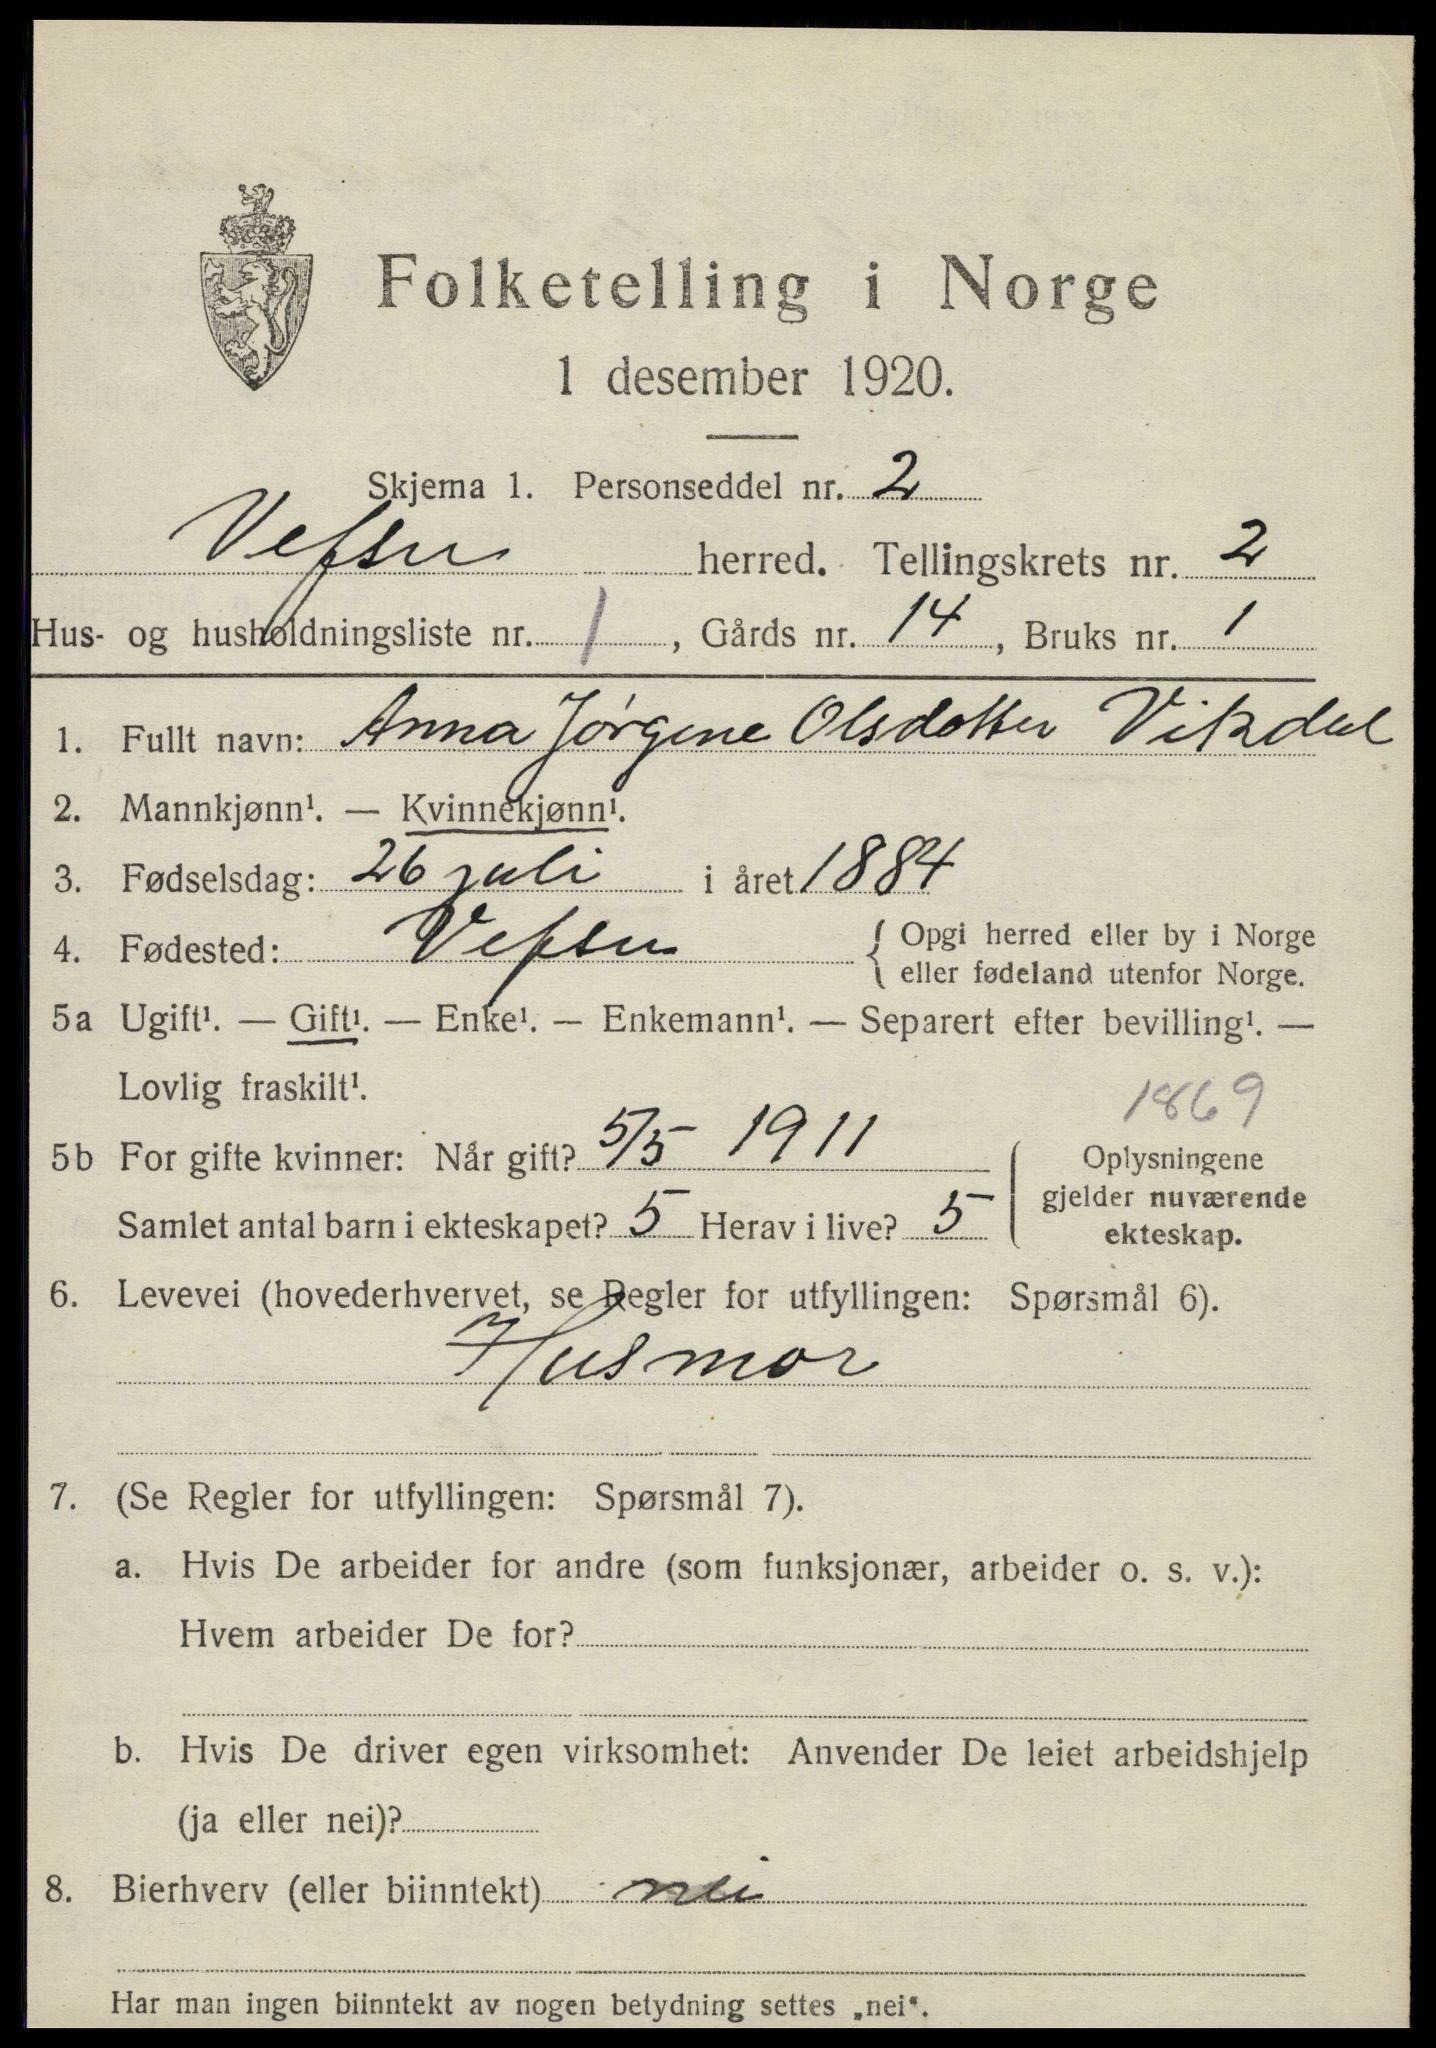 Folketelling i Norge
1 desember 1920.
Skjema 1. Personseddel nr. 2
Vefsn herred. Tellingskrets nr. 2
Hus- og husholdningsliste nr. 1, Gårds nr. 14, Bruks nr. 1
1. Fullt navn: Anna Jørgine Olsdotter Vikdal
2. Mannkjønn¹. — Kvinnekjønn¹.
3. Fødselsdag: 26 juli i året 1884
4. Fødested: Vefsn { Opgi herred eller by i Norge
eller fødeland utenfor Norge.
5a Ugift¹. — Gift¹. — Enke¹. — Enkemann¹. — Separert efter bevilling¹. —
Lovlig fraskilt¹.
1869
5b For gifte kvinner: Når gift? 5/5 1911
Samlet antal barn i ekteskapet? 5 Herav i live? 5
Oplysningene
gjelder nuværende
ekteskap.
6. Levevei (hovederhvervet, se Regler for utfyllingen: Spørsmål 6).
Husmor
7. (Se Regler for utfyllingen: Spørsmål 7).
a. Hvis De arbeider for andre (som funksjonær, arbeider o. s. v.):
Hvem arbeider De for?
b. Hvis De driver egen virksomhet: Anvender De leiet arbeidshjelp
(ja eller nei)?
8. Bierhverv (eller biinntekt) nei
Har man ingen biinntekt av nogen betydning settes „nei“.